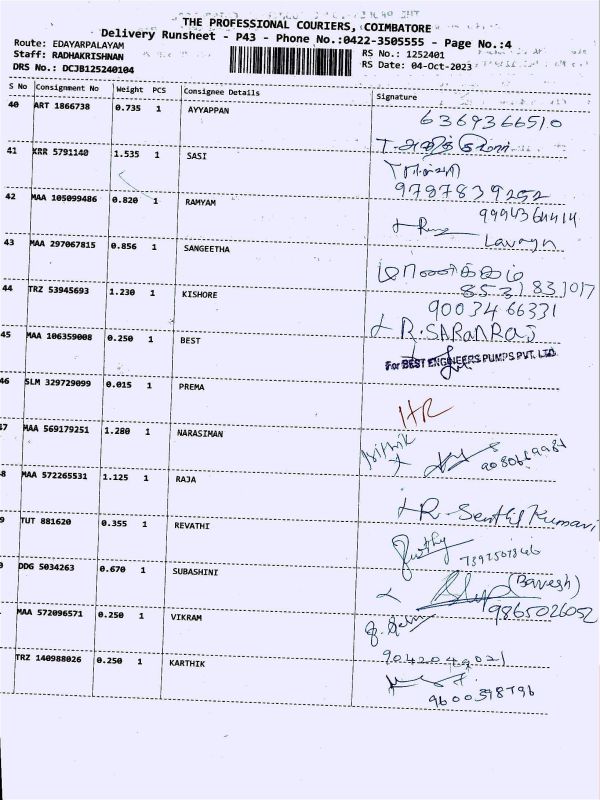 THE PROFESSIONAL COURIERS, COIMBATORE
Delivery Runsheet - P43 - Phone No.:0422-3505555 - Page No.:4
Route: EDAYARPALAYAM
RS No.: 1252401
Staff: RADHAKRISHNAN
RS Date: 04-Oct-2023
DRS No.: DCJB125240104
S No Consignment No Weight PCS Consignee Details Signature
40 ART 1866738 0.735 1 AYYAPPAN 6369366510
41 KRR 5791140 1.535 1 SASI
9787839252
42 MAA 105099486 0.820 1 RAMYAM
Lavanya
43 MAA 297067815 0.856 1 SANGEETHA
8531831017
44 TRZ 53945693 1.230 1 KISHORE 9003466331
R. SARAN RAJ
45 MAA 106359008 0.250 1 BEST For BEST ENGINEERS PUMPS PVT. LTD.
46 SLM 329729099 0.015 1 PREMA HR
47 MAA 569179251 1.280 1 NARASIMAN
8 MAA 572265531 1.125 1 RAJA R. Senthil Kumari
9 TUT 881620 0.355 1 REVATHI
0 DDG 5034263 0.670 1 SUBASHINI (Bavesh)
9865026052
MAA 572096571 0.250 1 VIKRAM
9042049021
TRZ 140988026 0.250 1 KARTHIK
9600398796